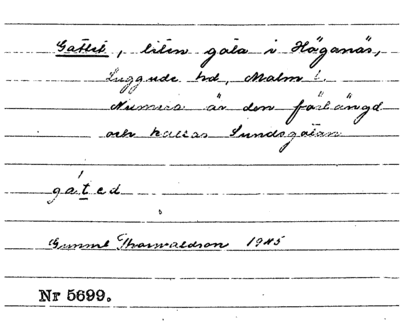 Gattet, liten gata i Höganäs,
Luggude hd, Malm l.
Numera är den förlängd
och kallas Sundsgatan
gáted
Gunnel Thorwaldson 1945
Nr 5699.